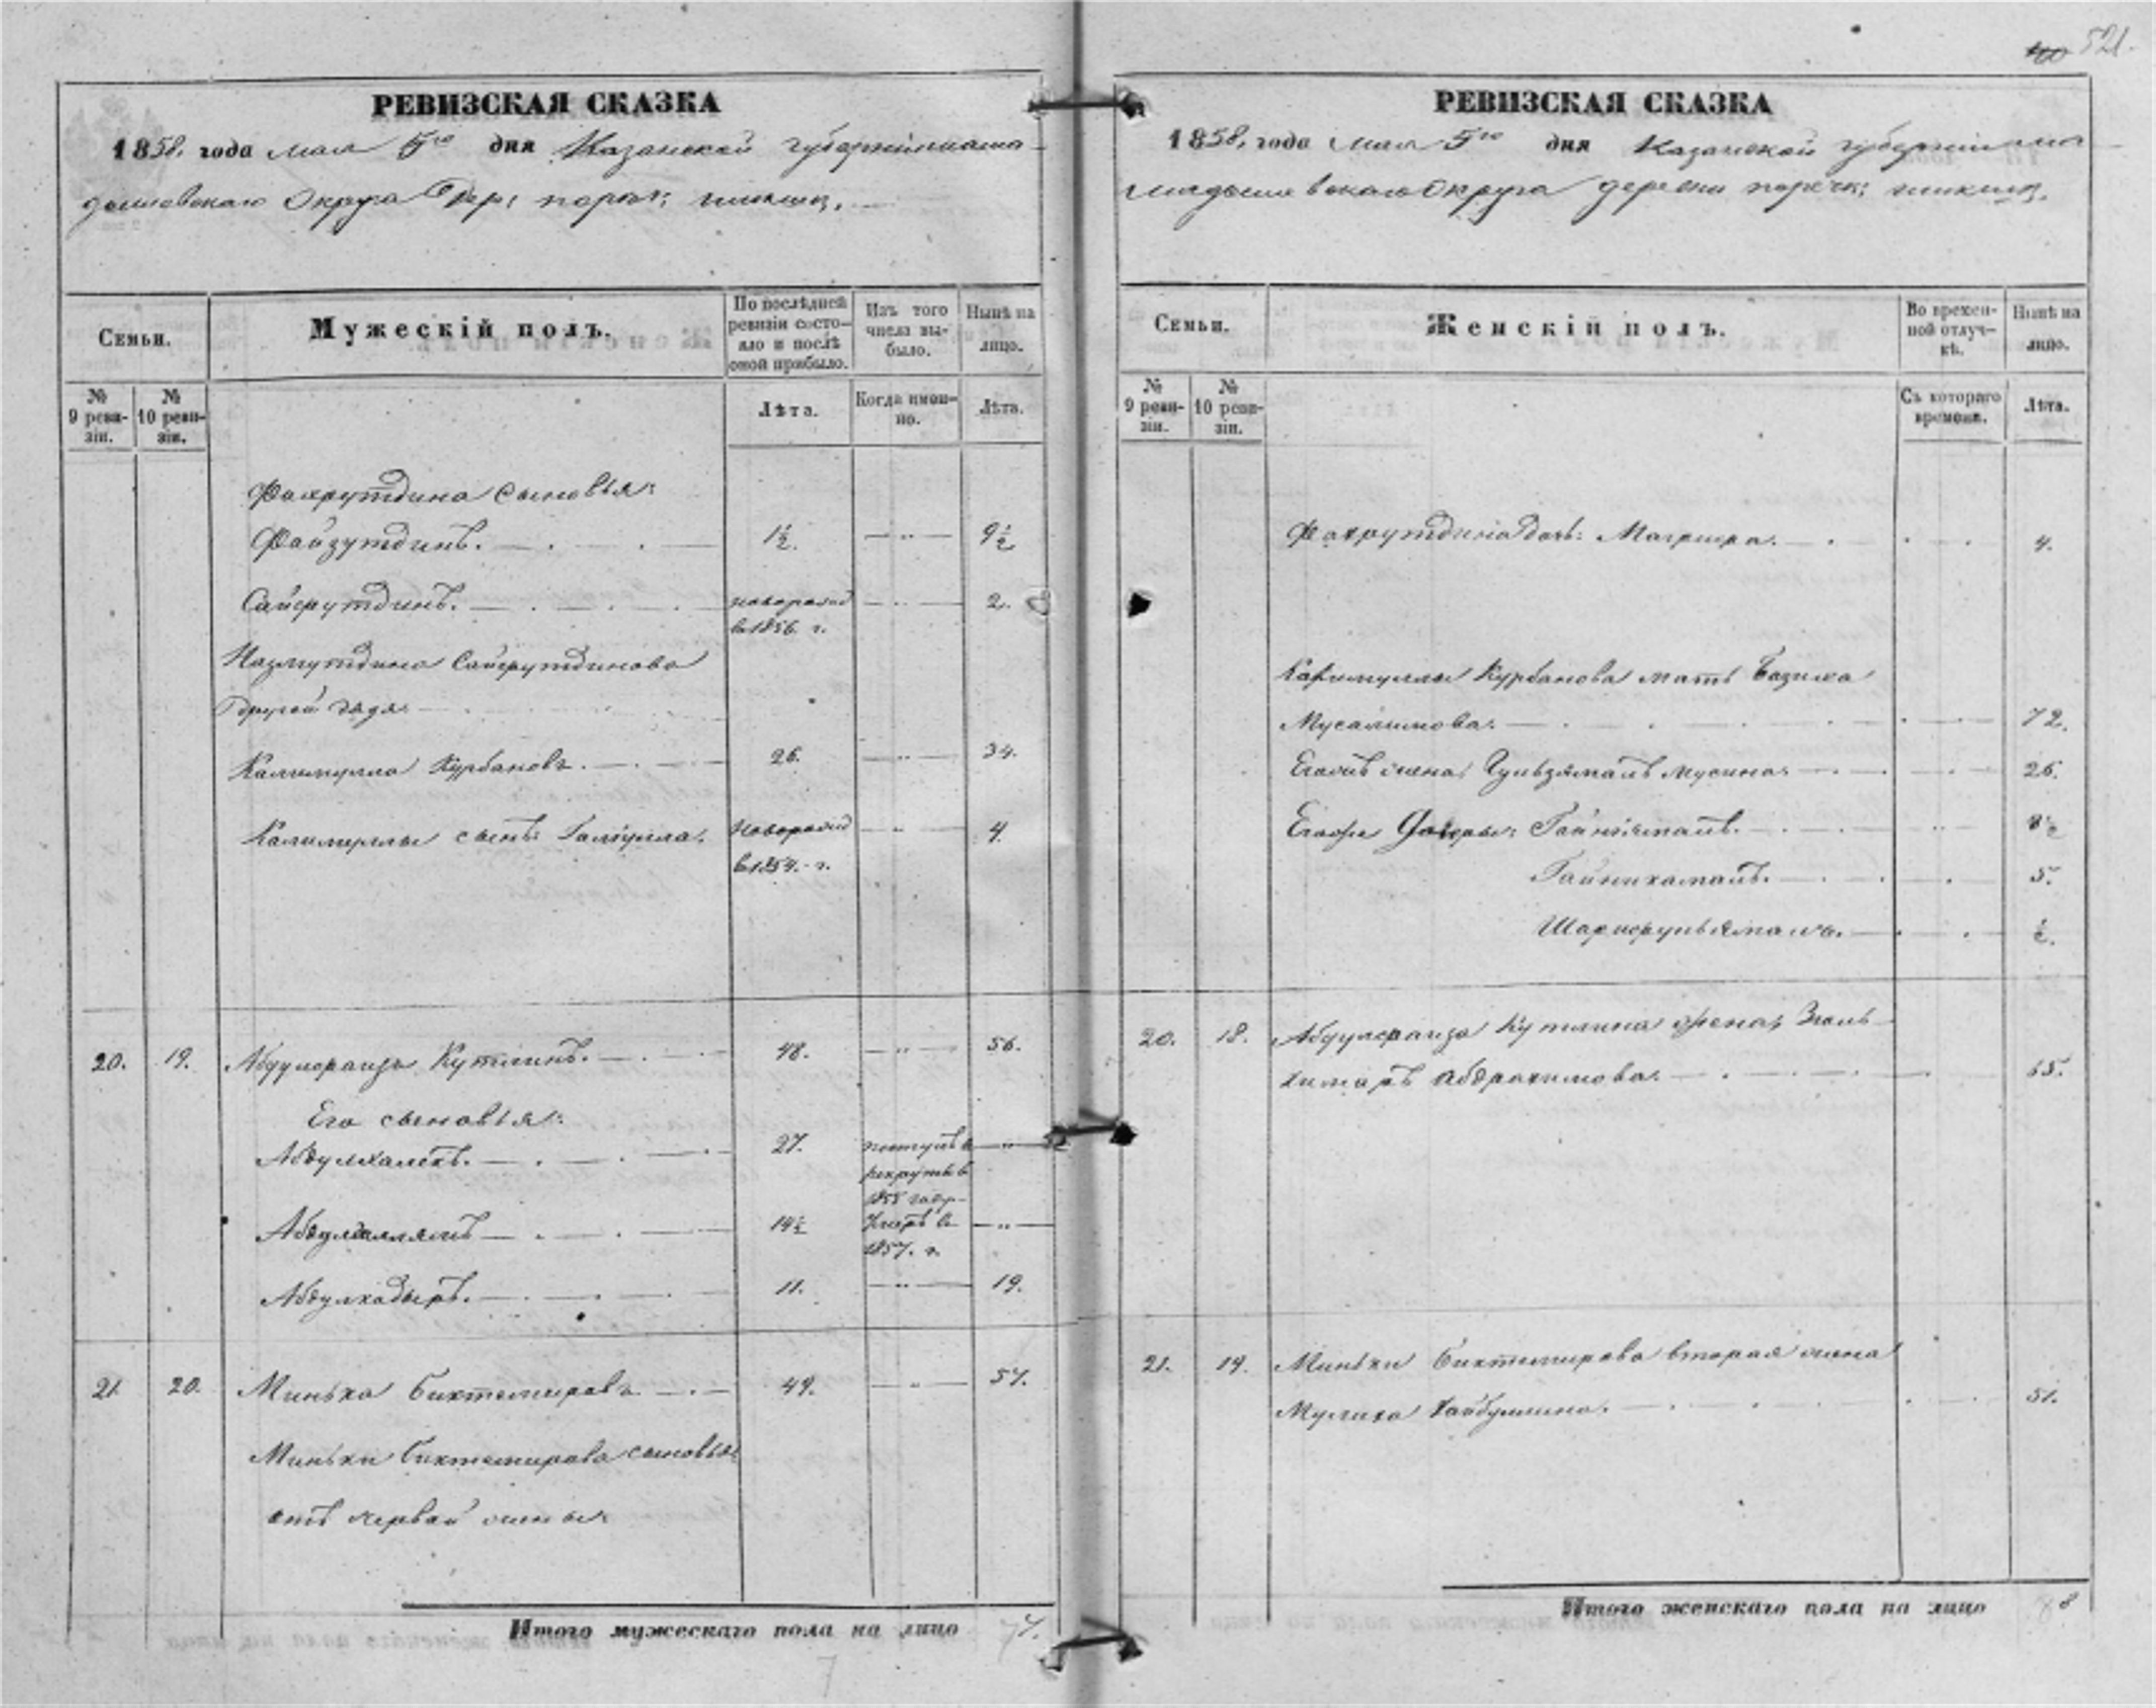 521.
РЕВИЗСКАЯ СКАЗКА
1858, года мая 5го дня Казанской губерніи мама-
дышевскаго Округа дер:
Семьи.
Мужескій полъ.
По послѣдней ревизіи состо-
яло и послѣ
оной прибыло.
Изъ того
числа вы-
было.
Нынѣ на
лицо.
№
9 реви-
зіи.
№
10 реви-
зіи.
Лѣта.
Когда имен-
но.
Лѣта.
Фахрутдина сыновья:
Файзутдинъ. 1½. 9½
Сайфутдинъ. новорожд 2.
в 1856. г.
Назмутдина Сайфутдинова
другой дядя
Калимулла Курбановъ. 26. 34.
Калимуллы сынъ: Галіулла. новорожд 4.
в 1854. г.
20. 19. Абдулфаизъ Кутлинъ. 48. 56.
Его сыновья:
Абдулхалекъ. 27. поступ. в
рекруты в
1855 году
Абдулвалямъ 14½ умеръ в
1857. г.
Абдулкадыръ. 11. 19.
21. 20. Минька Биктемировъ 49. 57.
Миньки Биктемирова сыновья
отъ первой жены:
Итого мужескаго пола на лицо 7.
РЕВИЗСКАЯ СКАЗКА
1858, года мая 5го дня Казанской губерніи ма-
мадышевскаго Округа деревни
Семьи.
Женскій полъ.
Во времен-
ной отлуч-
кѣ.
Нынѣ на
лицо.
№
9 реви-
зіи.
№
10 реви-
зіи.
Съ котораго
времени.
Лѣта.
Фахрутдина дочь: Магфира. 4.
Калимуллы Курбанова мать Базима
Мусалимова. 72.
Егожъ жена, Гульзямалъ Мусина. 26.
Егожъ дочери: Гайниямалъ. 8½
Гайникамалъ. 5.
Шарифульямалъ. ½.
20. 18. Абдулфаиза Кутлина жена, Зюль
химаръ Абдрахимова. 65.
21. 19. Миньки Биктемирова вторая жена
Мулиха Хайбуллина. 51.
Итого женскаго пола на лицо 8